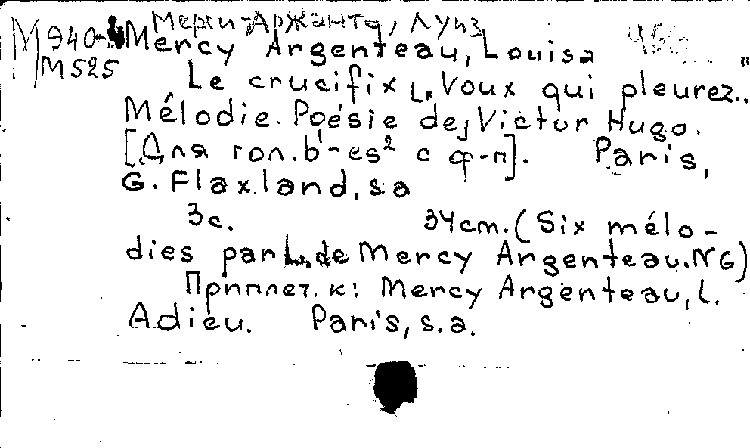 Мерси-Аржанто, Луиз
М 940-4 Mercy Argenteau, Louisa
М 525
Le crucifix „Voux qui pleurez.."
Mélodie. Poésie de Victor Hugo.
[Для гол. b'-es² с ф-п]. Paris,
G. Flaxland, s.a
3с. 34cm. (Six mélo-
dies par L. de Mercy Argenteau. N6)
Приплет. к: Mercy Argenteau, L.
Adieu. Paris, s.a.